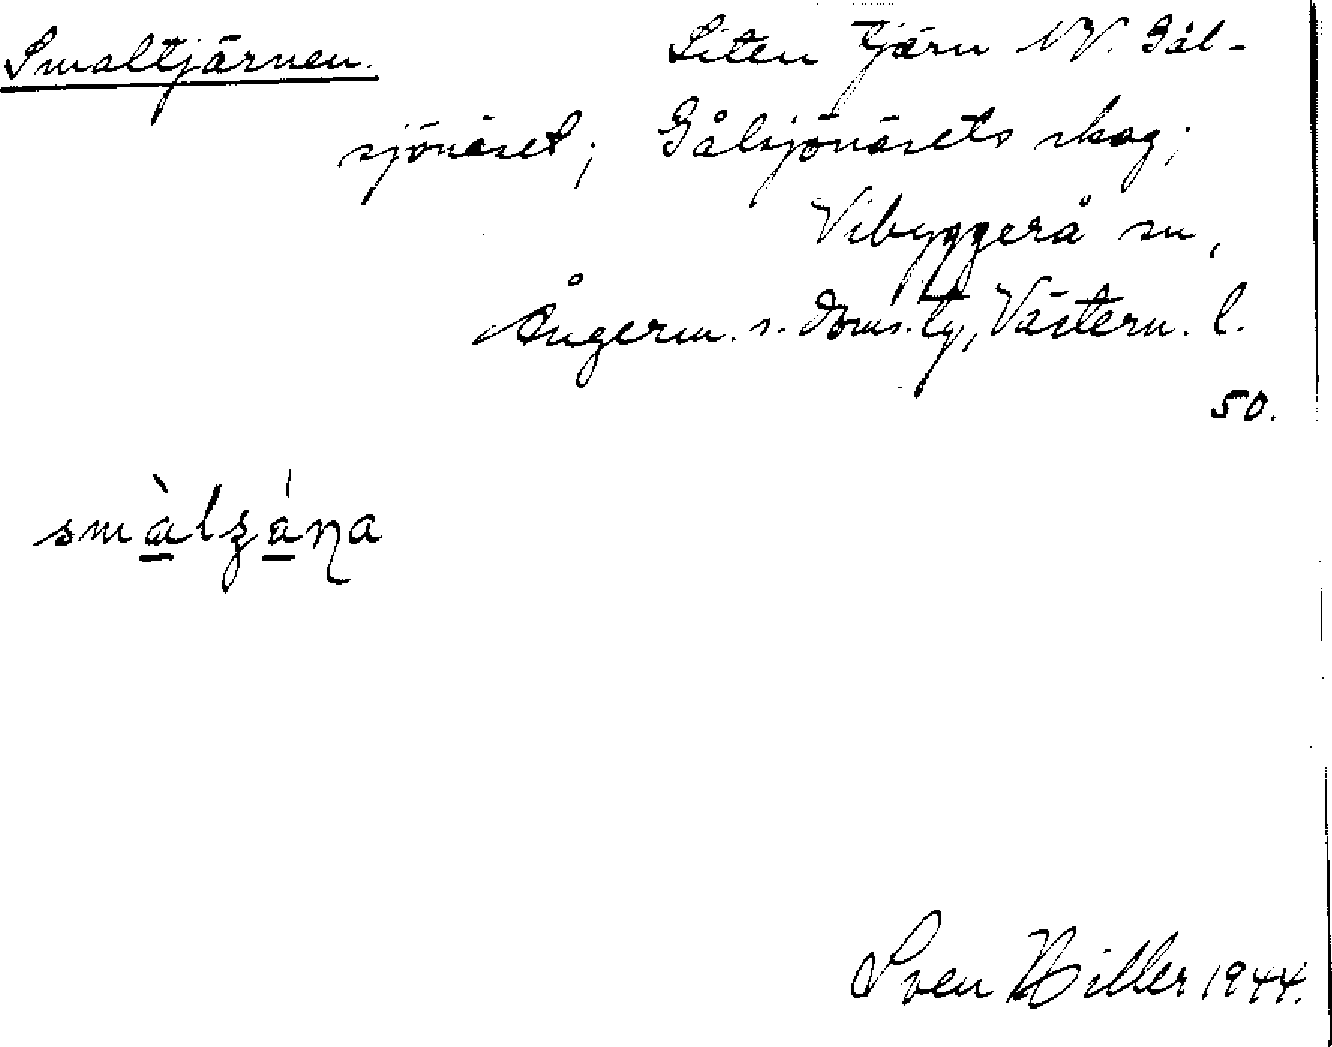 Smaltjärnen. Liten tjärn NV. Gål-
sjönäset; Gålsjönäsets skog;
Vibyggerå sn,
Ångerm. s. doms. tg, Västern. l.
50.
smàlzána
Sven Hiller 1944.